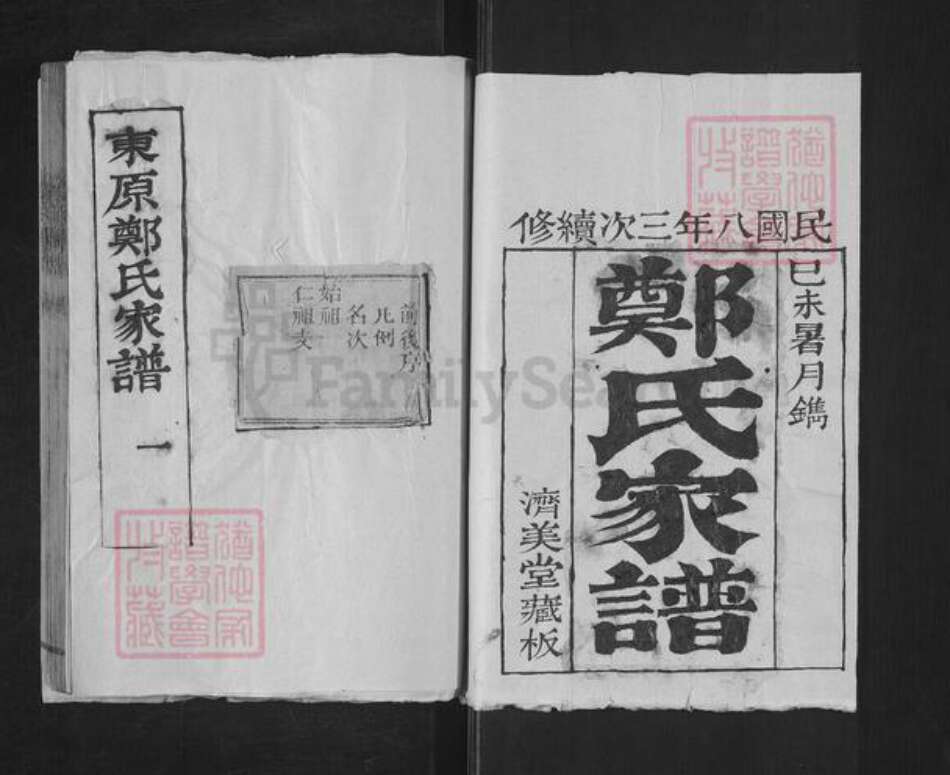 東原鄭氏家譜 一
前後序
凡例
名次
始祖一
仁祖支
民國八年三次續修
己未暑月鐫
鄭氏家譜
濟美堂藏板
FamilySea